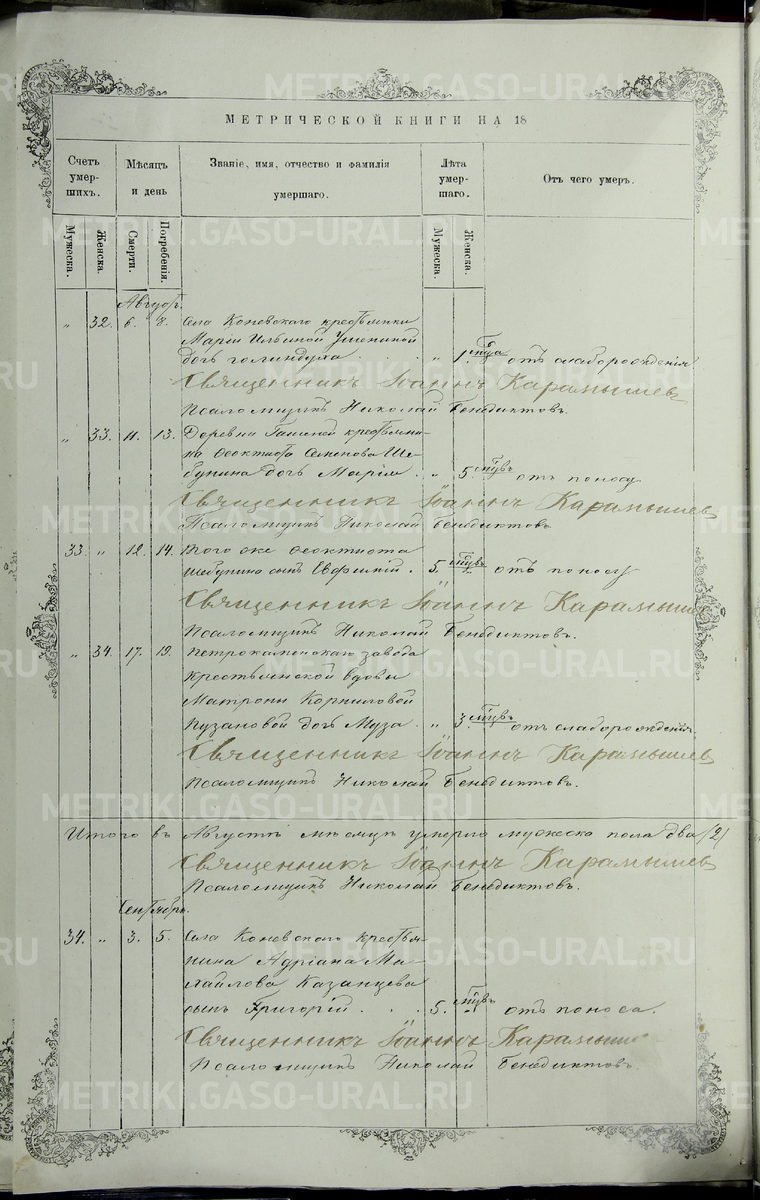 МЕТРИЧЕСКОЙ КНИГИ НА 18
Счетъ умершихъ.
Мѣсяцъ и день
Званіе, имя, отчество и фамилія умершаго.
Лѣта умершаго.
Отъ чего умеръ.
Мужеска.
Женска.
Смерти.
Погребенія.
Мужеска.
Женска.
Августъ.
„ 32. 6. 8. Села Коневскаго крестьянки
Маріи Ильиной
дочь Голиндуха . . . „ 1. отъ слаборожденія
Священникъ Іоаннъ Карамышевъ
Псаломщикъ Николай Бенедиктовъ.
„ 33. 11. 13. Деревни крестьяни-
на Феоктиста Семенова Ше-
бунина дочь Марія . „ 5. мѣсяцевъ отъ поносу
Священникъ Іоаннъ Карамышевъ
Псаломщикъ Николай Бенедиктовъ
33. „ 12. 14. Того же Феоктиста
Шебунина сынъ Евфимій . 5. мѣсяцевъ „ отъ поносу
Священникъ Іоаннъ Карамышевъ
Псаломщикъ Николай Бенедиктовъ.
„ 34. 17. 19. Петрокаменскаго завода
крестьянской вдовы
Матроны Корниловой
Пузановой дочь Муза . „ 3. мѣсяцевъ отъ слаборожденія
Священникъ Іоаннъ Карамышевъ
Псаломщикъ Николай Бенедиктовъ.
Итого въ Августѣ мѣсяцѣ умерло мужеска пола два (2)
Священникъ Іоаннъ Карамышевъ
Псаломщикъ Николай Бенедиктовъ.
Сентябрь.
34. „ 3. 5. Села Коневскаго крестья-
нина Адріана Ми-
хайлова Казанцева
сынъ Григорій . . . 5. мѣсяцевъ „ отъ поноса.
Священникъ Іоаннъ Карамышевъ
Псаломщикъ Николай Бенедиктовъ.
METRIKI.GASO-URAL.RU